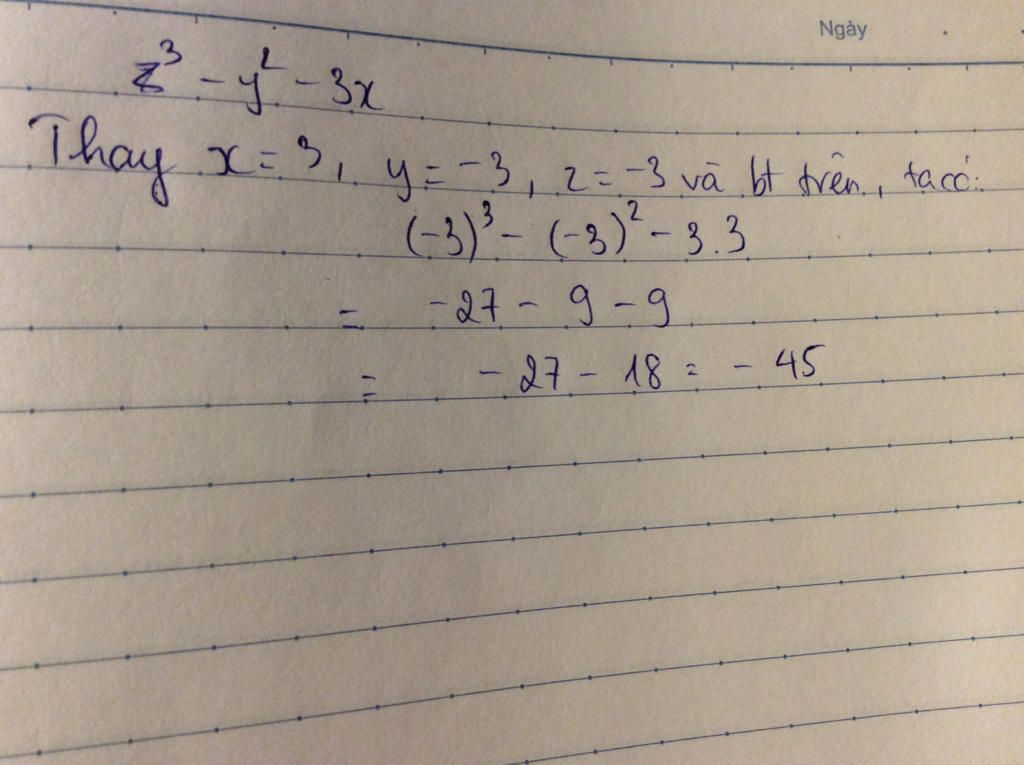 Ngày
z³ - y² - 3x
Thay x = 3, y = -3, z = -3 và bt trên, ta có:
(-3)³ - (-3)² - 3.3
= -27 - 9 - 9
= - 27 - 18 = - 45